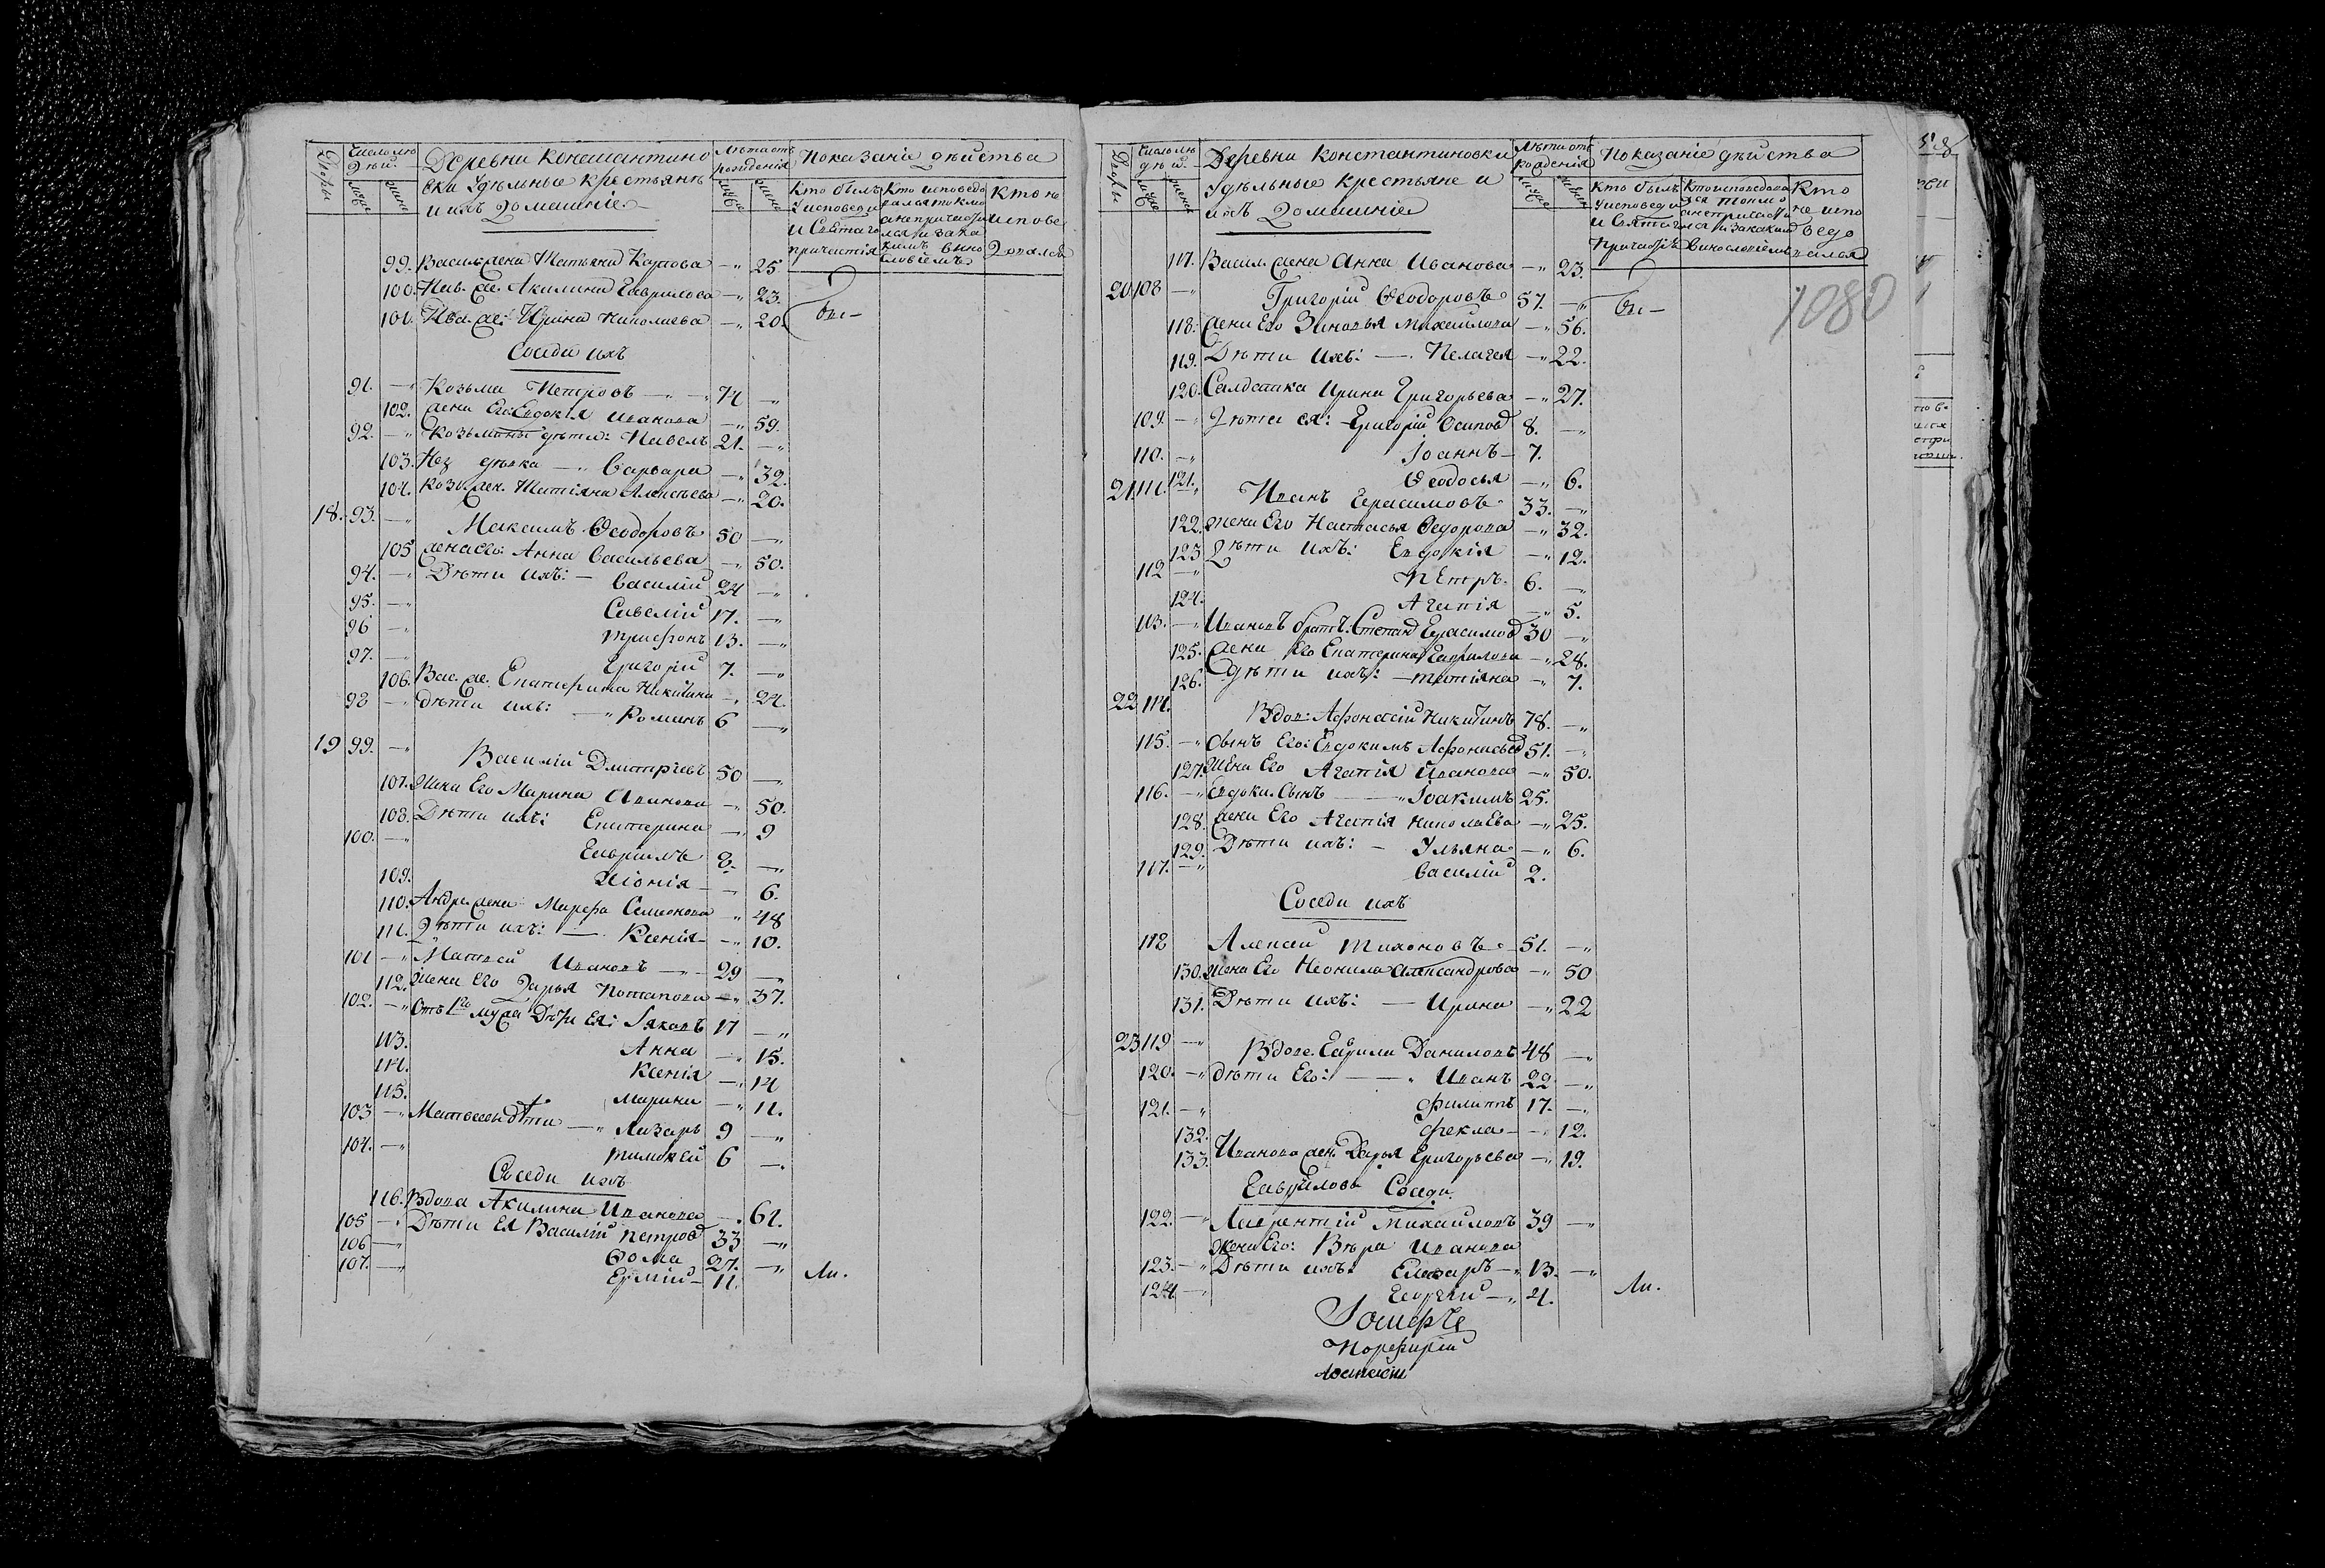 Дворы
Число лю
дей.
Деревни Константино
вки Удѣльные крестьянѣ
и ихъ домашніе.
Лѣта отъ
рожденія
Показаніе дѣйства
Кто былъ
у исповеди
и Святаго
причастія
Кто исповедо
вался токмо
а не причасти
лся и за ка
кимъ вино
словіемъ
Кто не
испове
довался
99. Васил. жена Татьяна Карпова —„ 25.
100. Пав. же. Акилина Гаврилова —„ 23.
101. Ива. же: Ирина Николаева —„ 20. бы—
Соседи ихъ
91. —„ Козьма Петровъ —„— 74 —„
102. жена Его: Евдокія Иванова —„ 59.
92. —„ Козьмины дѣти: Павелъ 21. —„
103. Нез дѣвка —„ Варвара —„ 32.
104. Козь. жен. Татіяна Алексѣева —„ 20.
18. 93. —„ Максимъ Ѳеодоровъ 50 —„
105 жена его: Анна Васильева —„ 50.
94. —„ Дѣти ихъ: — Василій 24 —„
95. —„ Савелій 17. —„
96 —„ Трифонъ 13. —„
97. —„ Григорій 7. —„
106. Вас. же. Екатерина Никитина —„ 24.
98 —„ дѣти ихъ: —„ Романъ 6 —„
19 99. —„ Василій Дмитріевъ 50 —„
107. Жена Его Марина Иванова —„ 50.
108. Дѣти ихъ: Екатерина —„ 9
100. —„ Гаврилъ 8 —„
109. Хіонія — —„ 6.
110. Андре. жена Марфа Семионова —„ 48
111. Дѣти ихъ: — Ксенія —„ 10.
101 —„ Матвей Ивановъ —„— 29 —„
112. жена Его Дарья Потапова —„ 37.
102. —„ Отъ 1го мужа Дѣти Ея: Іяковъ 17 —„
113. Анна —„ 15.
114. Ксенія —„ 14
115. Марина —„ 11.
103 —„ Матвеевы дѣти —„ Лазарь 9 —„
104. —„ Тимофей 6 —„
Соседи ихъ
116. Вдова Акилина Иванова —„ 61.
105 —„ Дѣти Ея Василій Петров 33 —„
106 —„ Ѳома 27. —„
107. —„ Ермій — 11. ли.
Дворы
Число лю
дей.
Деревни Константиновки
Удѣльные крестьяне и
ихъ домашніе
Лѣта отъ
рожденія
Показаніе дѣйства
Кто былъ
у исповеди
и Святаго
Причастія
Кто исповедова
лся токмо
а не причасти
лся и за какимъ
винословіемъ
Кто
не испо
ведо
вался
1080
117. Васил. жена Анна Иванова —„ 23.
20 108 —„ Григорій Ѳеодоровъ 57. —„ бы—
118. жена Его Зиновья Михаилова —„ 56.
119. Дѣти ихъ: —. Пелагея —„ 22.
120. Салдатка Ирина Григорьева —„ 27.
109. —„ Дѣти ея: Григорій Осипов 8. —„
110. —„ Іоаннъ — 7.
121. Ѳеодосья —„ 6.
21 111. —„ Иванъ Герасимовъ 33. —„
122. жена Его Настасья Ѳедорова —„ 32.
123 Дѣти ихъ: Евдокія —„ 12.
112 —„ Петръ 6. —„
124. Агапія —„ 5.
113. —„ Ивановъ братъ: Степанъ Герасимов 30 —„
125. жена Его Екатерина Гаврилова —„ 28.
126. Дѣти ихъ: — Татіяна —„ 7.
22 114. Вдов: Афонасій Никитинъ 78. —„
115. —„ Сынъ Его: Евдокимъ Афонасьев 51. —„
127. Жена Его Агапія Иванова —„ 50.
116. —„ Евдоки. Сынъ —„ Іоакимъ 25.
128. жена Его Агапія Николаева —„ 25.
129. Дѣти ихъ: — Ульяна —„ 6.
117. —„ Василій 2.
Соседи ихъ
118 Алексей Тихоновъ — 51. —„
130. Жена Его Неонила Александрова —„ 50
131. Дѣти ихъ: — Ирина —„ 22
23 119 —„ Вдове. Гаврила Даниловъ 48 —„
120. —„ дѣти Его: —„ Иванъ 22 —„
121. —„ Филиппъ 17. —„
132. Фекла — —„ 12.
133. Иванова жен. Дарья Григорьева —„ 19.
Гавриловы Соседи.
122. —„ Лаврентій Михайловъ 39 —„
Жена Его: Вѣра Иванова
123. —„ Дѣти ихъ: Елезаръ —„ 13. —„
124 —„ Георгій —„ 4. ли.
Іосифъ
Порфирій
Афанасій